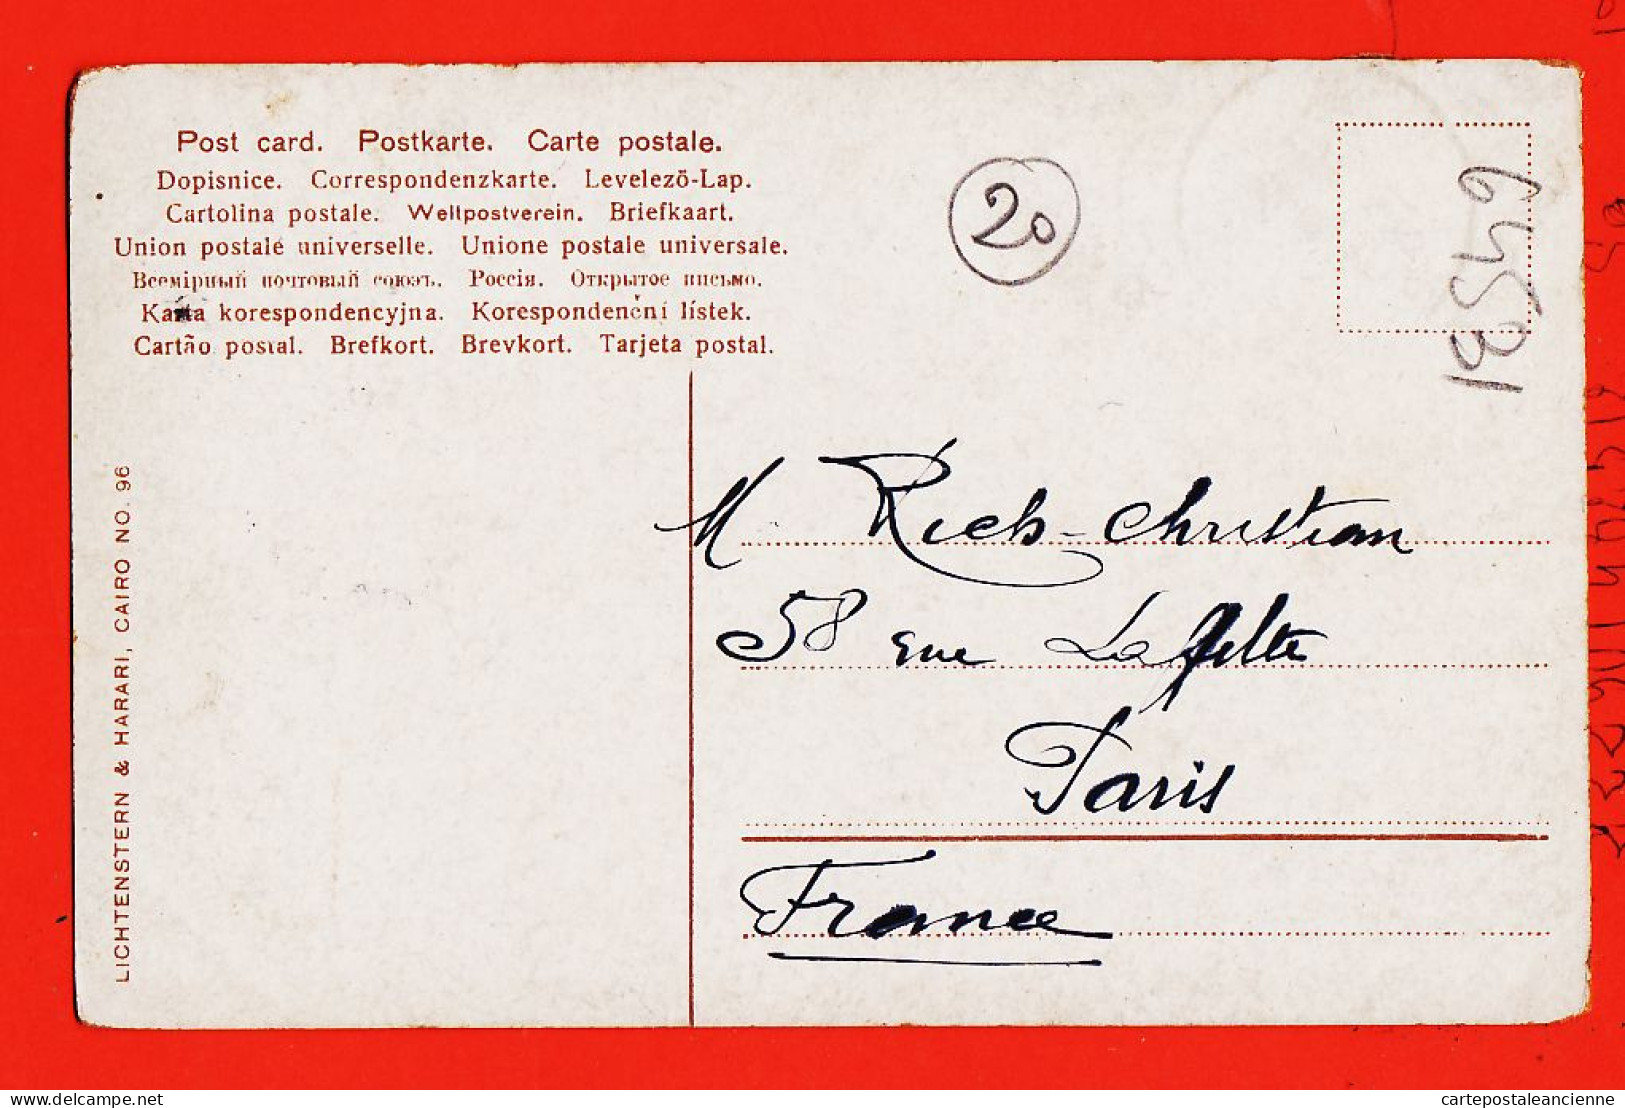 Post card. Postkarte. Carte postale.
Dopisnice. Correspondenzkarte. Levelezõ-Lap.
Cartolina postale. Weltpostverein. Briefkaart.
Union postale universelle. Unione postale universale.
Всемірный почтовый союзъ. Россія. Открытое письмо.
Karta korespondencyjna. Korespondenční lístek.
Cartão postal. Brefkort. Brevkort. Tarjeta postal.
20
LICHTENSTERN & HARARI, CAIRO NO. 96
M Rieb-Christian
58 rue Lafitte
Paris
France
delcampe.net
cartepostaleancienne